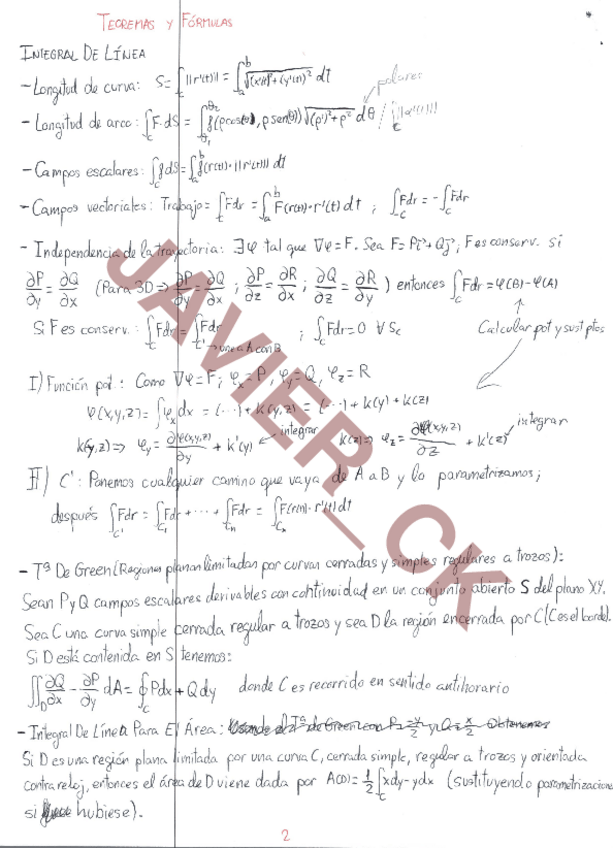 TEOREMAS Y FÓRMULAS
INTEGRAL DE LÍNEA
- Longitud de curva: S = ∫_C ||r'(t)|| = ∫_a^b √((x'(t))² + (y'(t))²) dt
polares
- Longitud de arco: ∫_C F·dS = ∫_θ1^θ2 f(ρcosθ, ρsenθ) √((ρ')² + ρ²) dθ /
- Campos escalares: ∫_C f dS = ∫_a^b f(r(t))·||r'(t)|| dt
- Campos vectoriales: Trabajo = ∫_C Fdr = ∫_a^b F(r(t))·r'(t) dt ; ∫_-C Fdr = -∫_C Fdr
- Independencia de la trayectoria: ∃φ tal que ∇φ = F. Sea F = Pi + Qj ; F es conserv. si
∂P/∂y = ∂Q/∂x (Para 3D ⇒ ∂P/∂y = ∂Q/∂x ; ∂P/∂z = ∂R/∂x ; ∂Q/∂z = ∂R/∂y) entonces ∫_C Fdr = φ(B) - φ(A)
Si F es conserv.: ∫_C Fdr = ∫_C' Fdr ; ∫_C Fdr = 0 ∀ Sc Calcular pot y sust ptos
→ une a A con B
I) Función pot.: Como ∇φ = F ; φx = P, φy = Q, φz = R
φ(x,y,z) = ∫φx dx = (···) + k(y,z) = (···) + k(y) + k(z)
k(y,z) ⇒ φy = ∂φ(x,y,z)/∂y + k'(y) ← integrar k(z) ⇒ φz = ∂φ(x,y,z)/∂z + k'(z) integrar
II) C': Ponemos cualquier camino que vaya de A a B y lo parametrizamos;
después ∫_C' Fdr = ∫_C1 Fdr + ··· + ∫_Cn Fdr = ∫_Cn F(r(t))·r'(t) dt
- Tª De Green (Regiones planas limitadas por curvas cerradas y simples regulares a trozos):
Sean P y Q campos escalares derivables con continuidad en un conjunto abierto S del plano XY.
Sea C una curva simple cerrada regular a trozos y sea D la región encerrada por C (C es el borde).
Si D está contenida en S tenemos:
∬_D ∂Q/∂x - ∂P/∂y dA = ∮_C Pdx + Qdy donde C es recorrido en sentido antihorario
- Integral De Línea Para El Área:
Si D es una región plana limitada por una curva C, cerrada simple, regular a trozos y orientada
contrareloj, entonces el área de D viene dada por A(D) = 1/2 ∫_C xdy - ydx (sustituyendo parametrizaciones
si hubiese).
2
JAVIER_CK